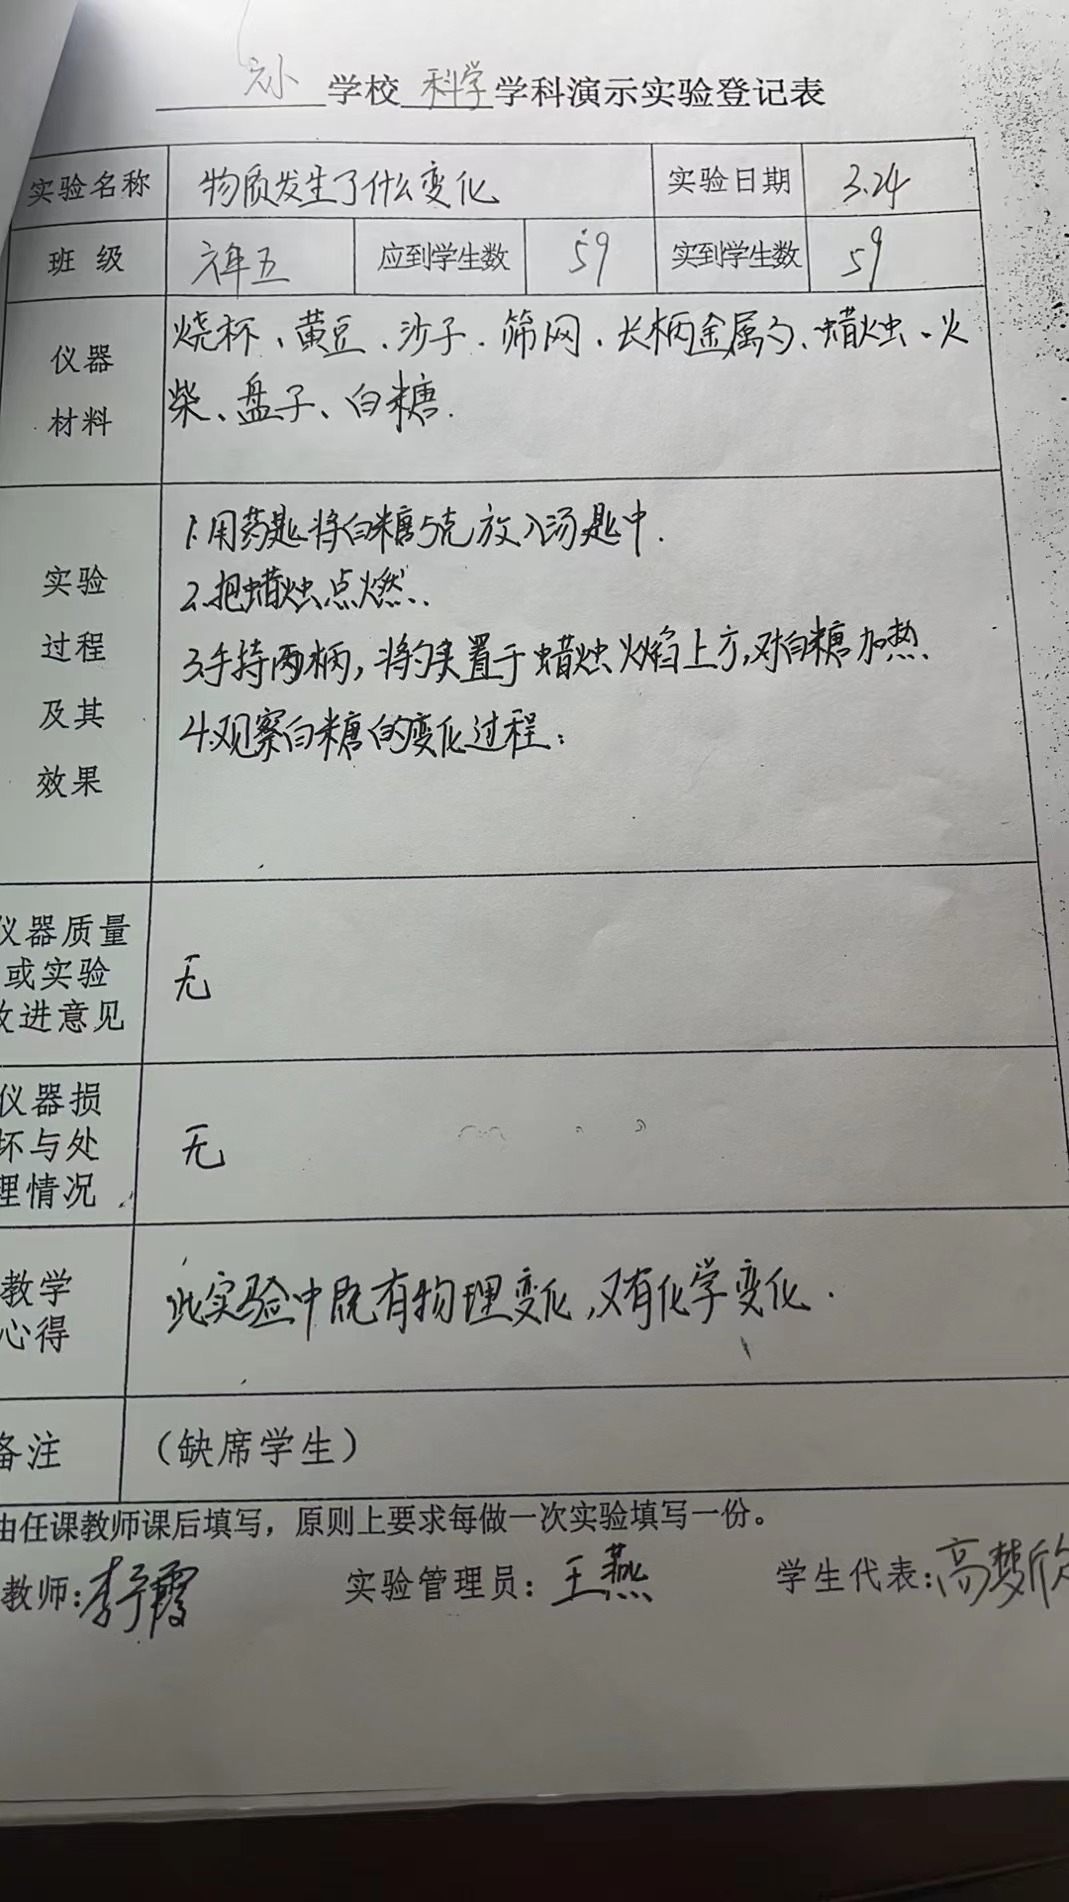 学校科学学科演示实验登记表
实验名称 物质发生了什么变化 实验日期 3.24
班级 六年五 应到学生数 59 实到学生数 59
仪器材料 烧杯、黄豆、沙子、筛网、长柄金属勺、蜡烛、火
柴、盘子、白糖.
实验过程及其效果
1.用药匙将白糖5克放入汤匙中.
2.把蜡烛点燃.
3.手持两柄,将置于蜡烛火焰上方,对白糖加热、
4.观察白糖的变化过程:
仪器质量
或实验
改进意见
无
仪器损
坏与处
理情况
无
教学
心得
此实验中既有物理变化,又有化学变化.
备注 (缺席学生)
由任课教师课后填写，原则上要求每做一次实验填写一份。
教师: 实验管理员:王燕 学生代表:高梦欣